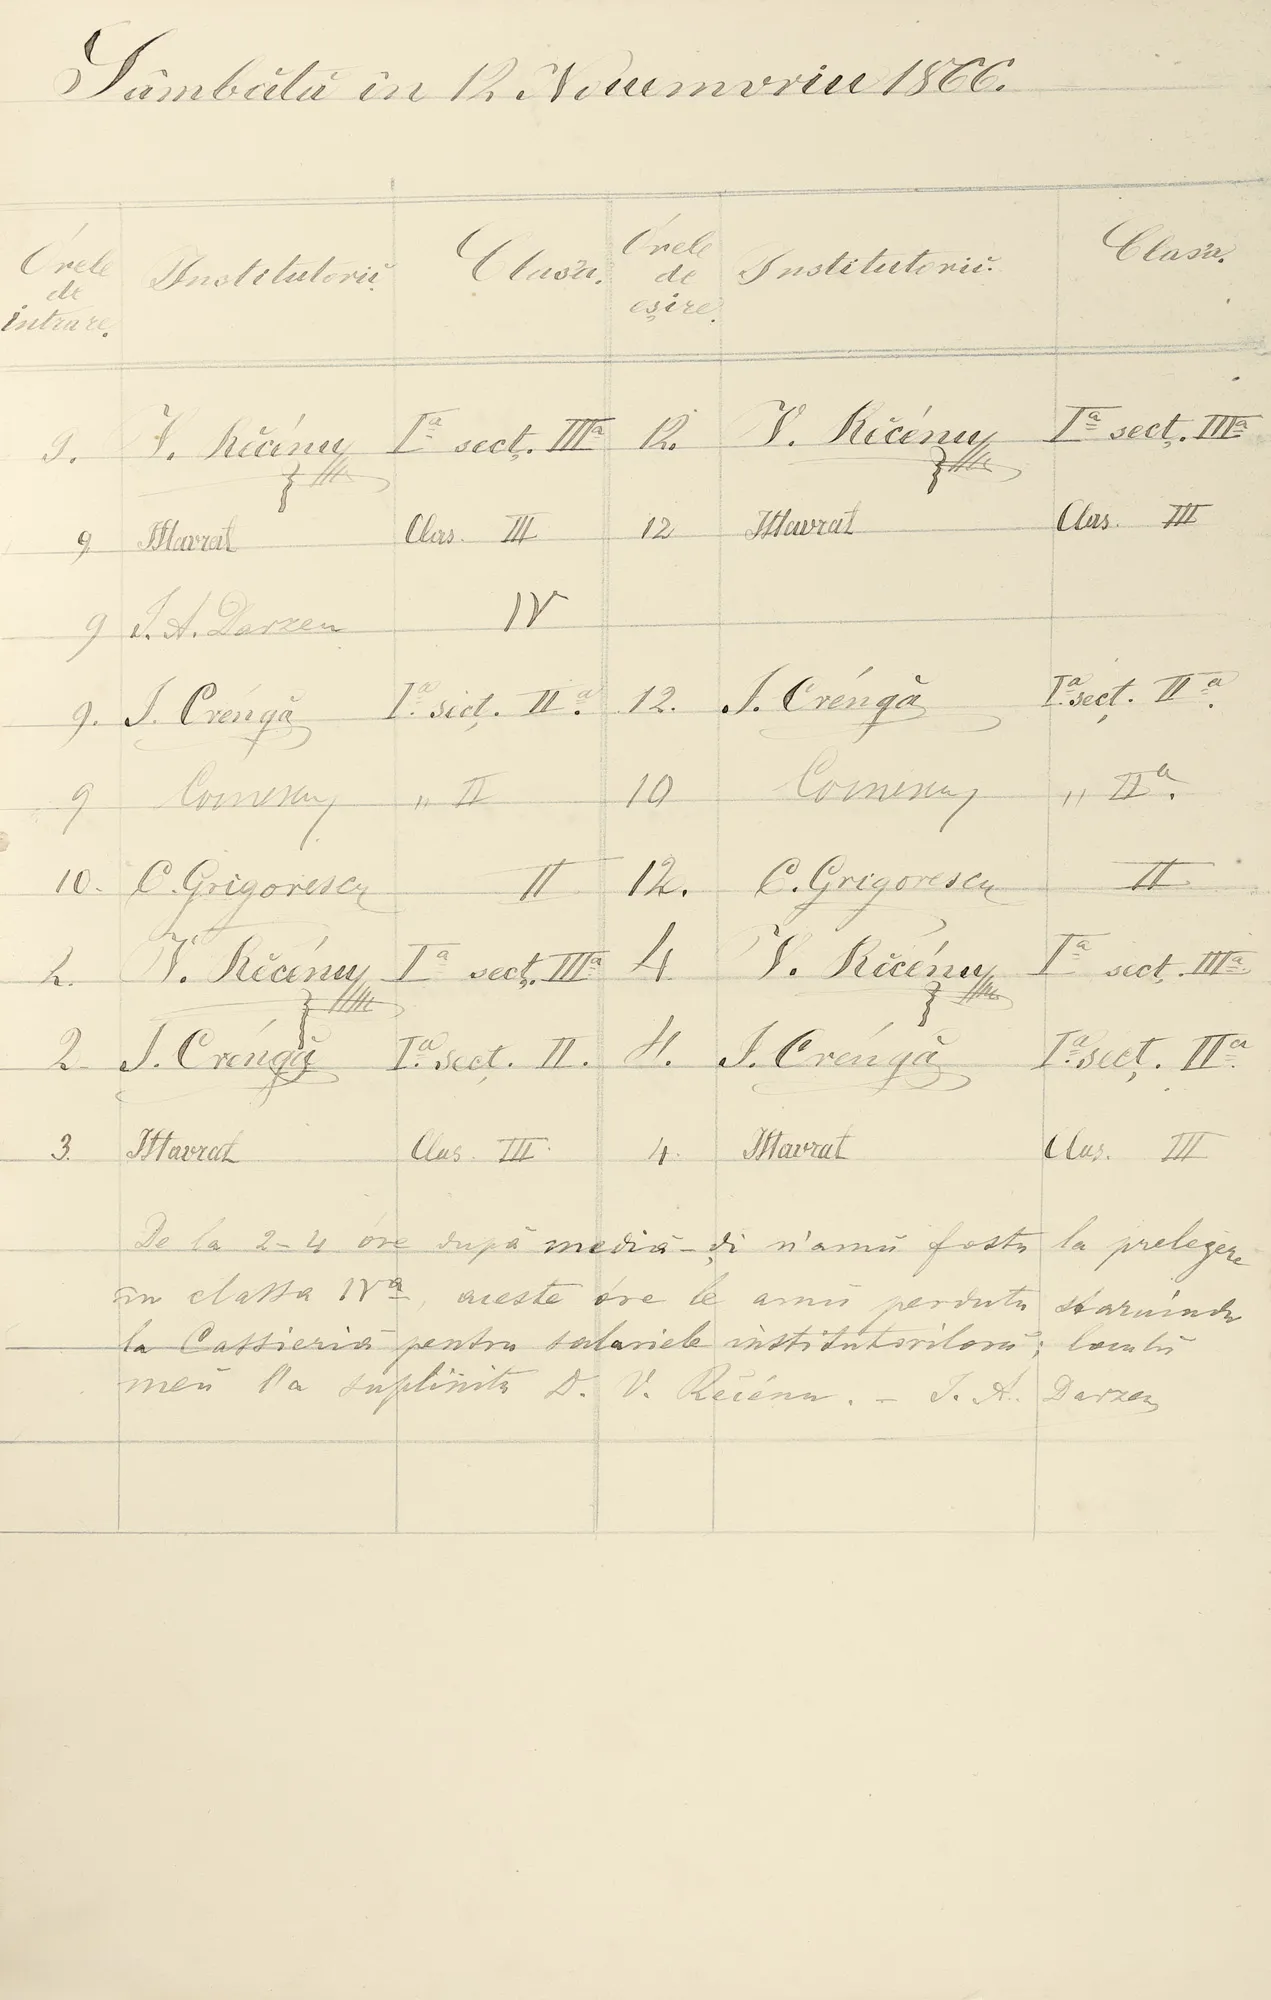 Sâmbătă în 12 Noiumvriu 1866.
Órele de intrare. Institutoriĭ. Clasa. Órele de eşire. Institutoriĭ. Clasa.
9. V. Rĕcénu Iª secţ. IIIª 12. V. Rĕcénu Iª secţ. IIIª
9 Mavrat Clas. III 12 Mavrat Clas. III
9 I. A. Darzeu IV
9. I. Créngă Iª. secţ. IIª. 12. I. Créngă Iª. secţ. IIª.
9 „ II 10 „ IIª.
10. C. Grigorescu II 12. C. Grigorescu II
2. V. Rĕcénu Iª secţ. IIIª 4 V. Rĕcénu Iª secţ. IIIª
2 I. Créngă Iª. secţ. II. 4. I. Créngă Iª. secţ. IIª.
3. Mavrat Clas. III 4. Mavrat Clas. III
De la 2–4 óre după mediă-ḑi n'amŭ fostu la prelegere
în classa IVª, aceste óre le amŭ perdutu stăruindu
la Cassieriă pentru salariele institutorilorŭ; loculŭ
meŭ l'a suplinitu D. V. Rĕcénu. – I. A. Darzeu